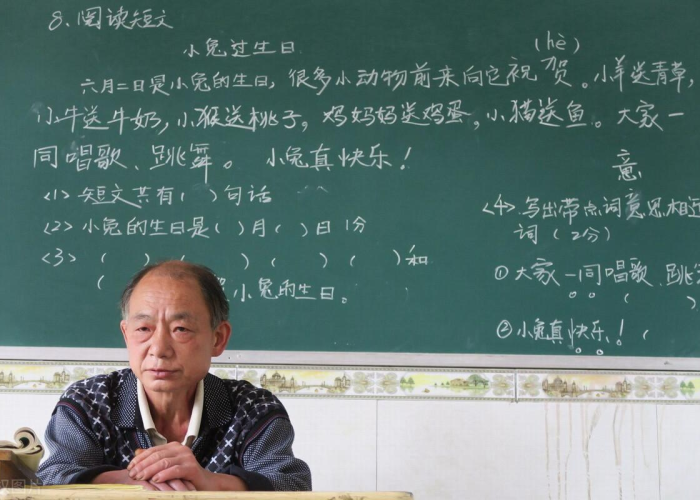 8、阅读短文
小兔过生日
(hè)
六月二日是小兔的生日,很多小动物前来向它祝贺。小羊送青草,
小牛送牛奶,小猴送桃子,鸡妈妈送鸡蛋,小猫送鱼。大家一
同唱歌、跳舞。 小兔真快乐!
<1> 短文共有( )句话
<2> 小兔的生日是( )月( )日 1分
<3> ( ) ( ) ( ) ( ) ( )和
( 小兔的生日。
意
<4>、写出带点词意思相近
词(2分)
①大家一同唱歌、跳
( )
②小兔真快乐!(